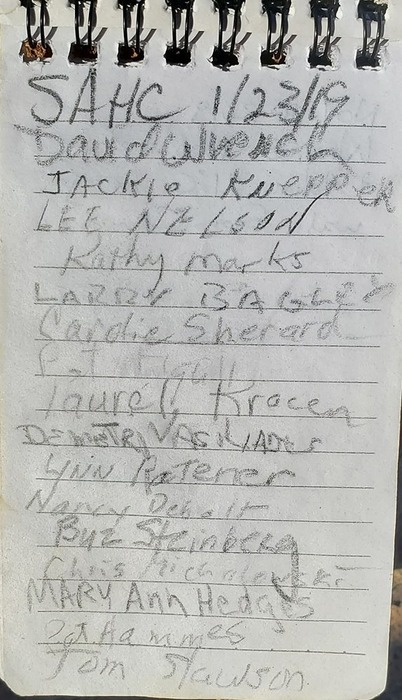 SAHC 1/23/19
David Wrench
JACKIE KNEPPER
LEE NELSON
Kathy Marks
LARRY BAGLEY
Cardie Sherard
Laurel Kracen
DEMETRI VASILIADES
LYNN
Nancy DeHolt
Buz Steinberg
Chris
MARY Ann Hedges
Pat Hammes
Tom Slawson